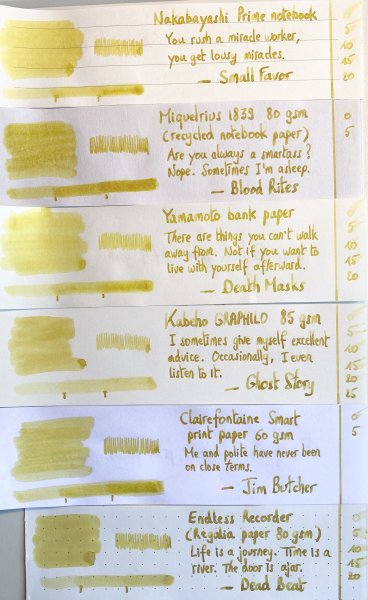 Nakabayashi Prime notebook
You rush a miracle worker,
you get lousy miracles.
— Small Favor
0
5
10
15
20
Miquelrius 1839 80 gsm
(recycled notebook paper)
Are you always a smartass?
Nope. Sometimes I'm asleep.
— Blood Rites
0
5
Yamamoto bank paper
There are things you can't walk
away from. Not if you want to
live with yourself afterward.
— Death Masks
5
10
15
20
Kabeho GRAPHILO 85 gsm
I sometimes give myself excellent
advice. Occasionally, I even
listen to it.
— Ghost Story
5
10
15
20
25
Clairefontaine Smart
print paper 60 gsm
Me and polite have never been
on close terms.
— Jim Butcher
0
5
Endless Recorder
(Regalia paper 80 gsm)
Life is a journey. Time is a
river. The door is ajar.
— Dead Beat
0
5
10
15
20